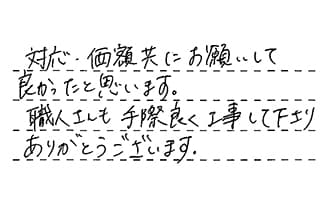 対応・価額共にお願いして
良かったと思います。
職人さんも手際良く工事して下さり
ありがとうございます.